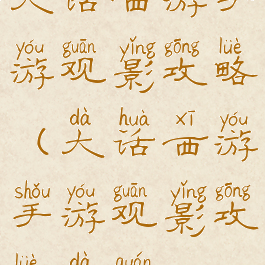 大话西游手
yóu guān yǐng gōng lüè
游观影攻略
dà huà xī yóu
（大话西游
shǒu yóu guān yǐng gōng
手游观影攻
lüè dà quán